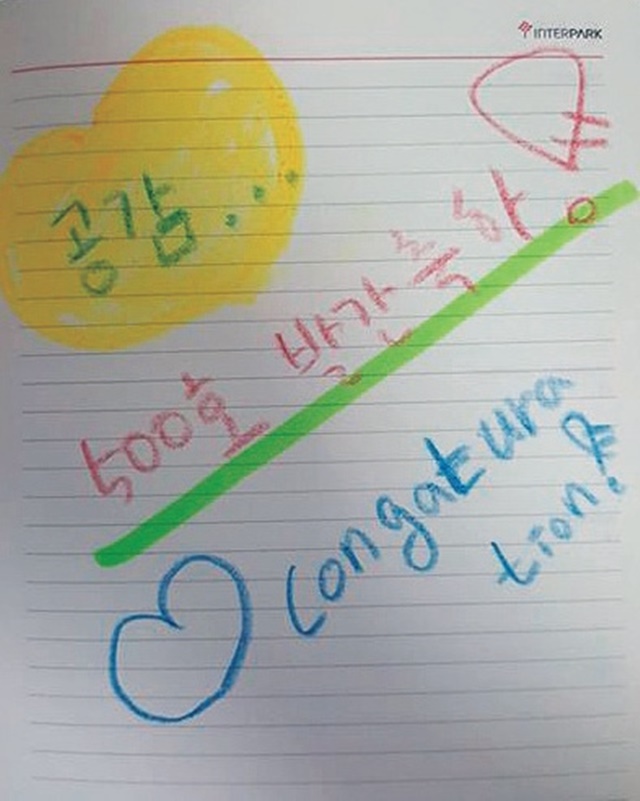 INTERPARK
공감...
500호 발간 축하
congatura
tion!